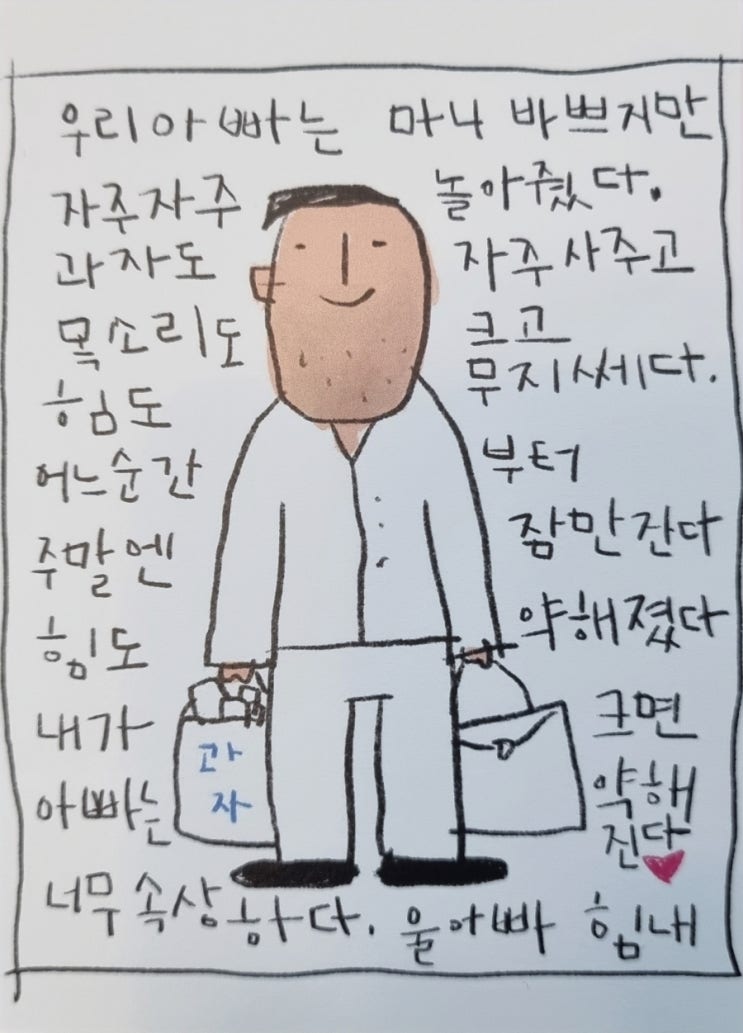 우리아빠는 마니 바쁘지만
자주자주 놀아줬다.
과자도 자주사주고
목소리도 크고
힘도 무지쎄다.
어느순간 부터
주말엔 잠만잔다
힘도 약해졌다
내가 크면
아빠는 약해
진다
너무속상하다. 울아빠 힘내
과
자